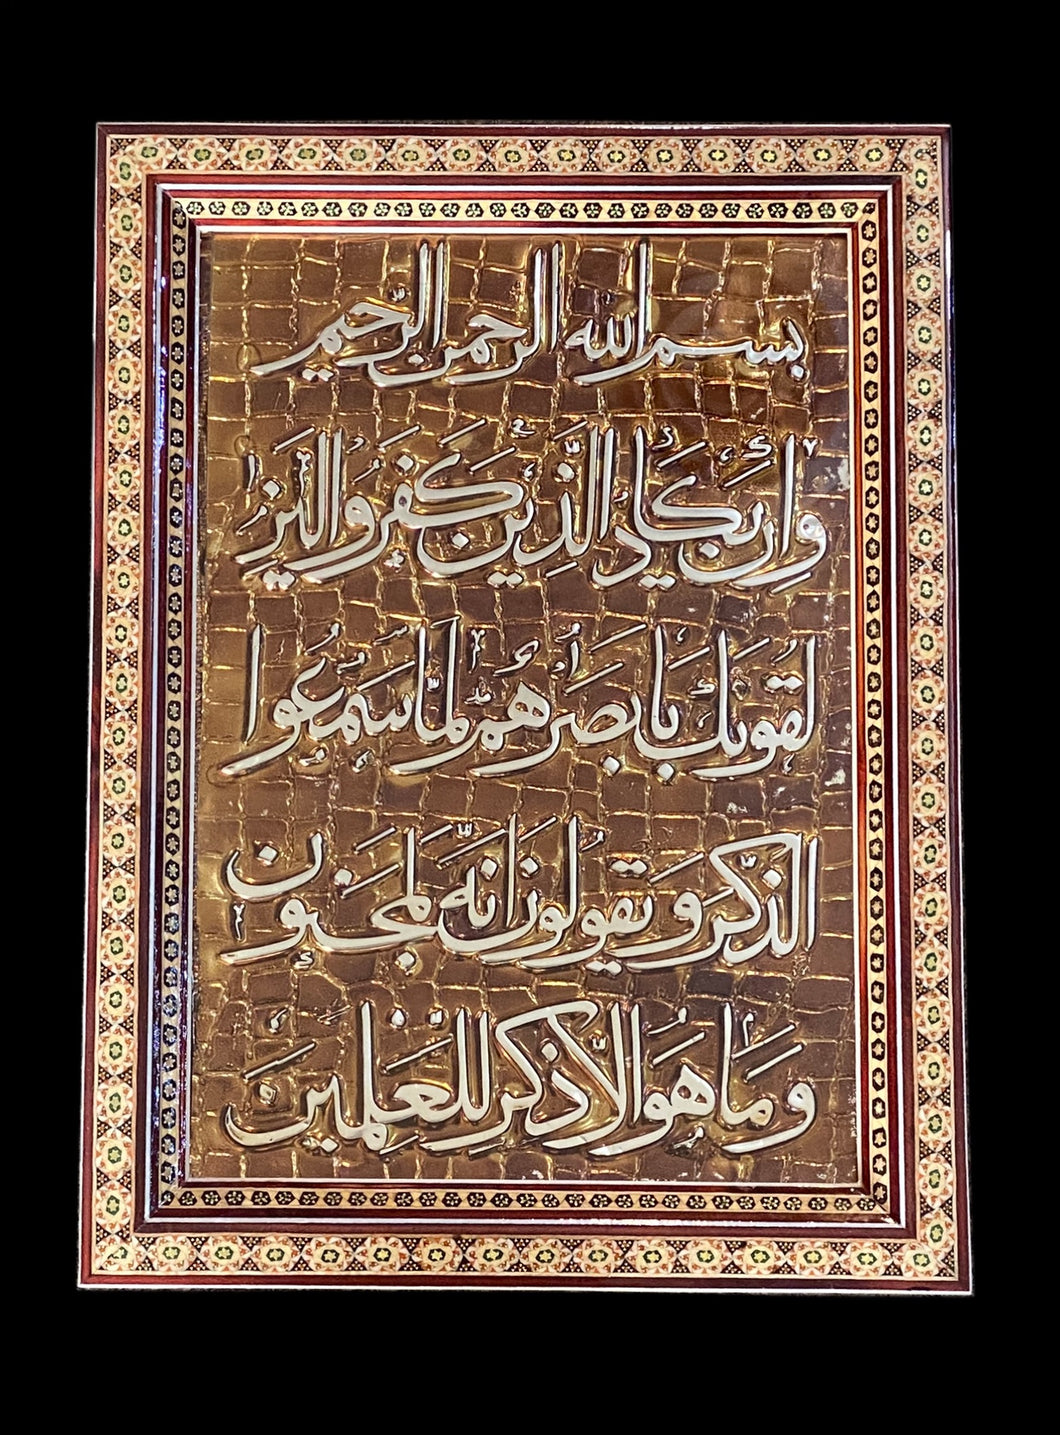 بسم الله الرحمن الرحيم
وَاِن يَكَادُ الَّذِينَ كَفَرُوا لَيُزْ
لِقُونَكَ بِاَبْصَٰرِهِمْ لَمَّا سَمِعُوا
الذِّكْرَ وَيَقُولُونَ اِنَّهُ لَمَجْنُونٌ
وَمَا هُوَ اِلَّا ذِكْرٌ لِلْعَٰلَمِينَ